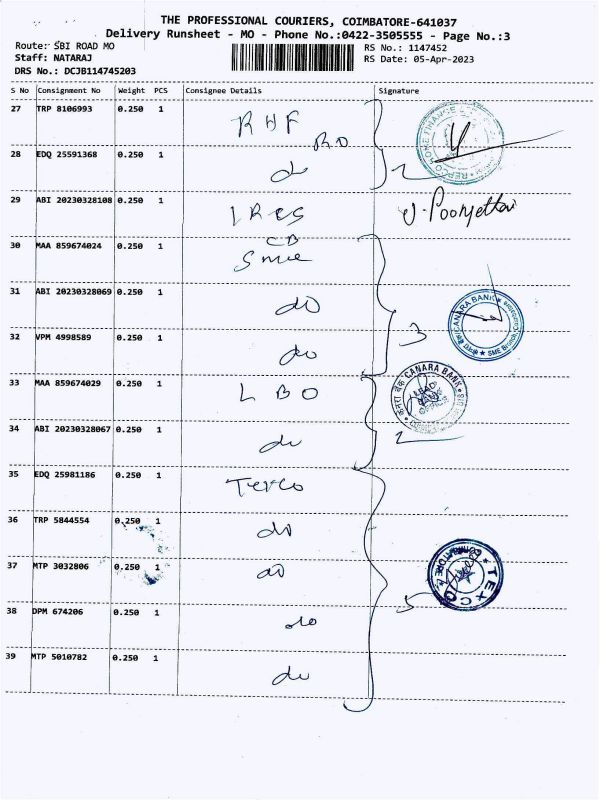 THE PROFESSIONAL COURIERS, COIMBATORE-641037
Delivery Runsheet - MO - Phone No.:0422-3505555 - Page No.:3
Route: SBI ROAD MO
RS No.: 1147452
Staff: NATARAJ
RS Date: 05-Apr-2023
DRS No.: DCJB114745203
S No Consignment No Weight PCS Consignee Details Signature
27 TRP 8106993 0.250 1 RHF
RO
28 EDQ 25591368 0.250 1 do 2
29 ABI 20230328108 0.250 1
30 MAA 859674024 0.250 1 CB
Sme
31 ABI 20230328069 0.250 1 do
CANARA BANK
SME Branch
32 VPM 4998589 0.250 1 do 3
33 MAA 859674029 0.250 1 LBO
केनरा बैंक CANARA BANK
LEAD BANK OFFICE
34 ABI 20230328067 0.250 1 do 2
35 EDQ 25981186 0.250 1 Texco
36 TRP 5844554 0.250 1 do
37 MTP 3032806 0.250 1 do 5
TEXCO
38 DPM 674206 0.250 1 do
39 MTP 5010782 0.250 1 do